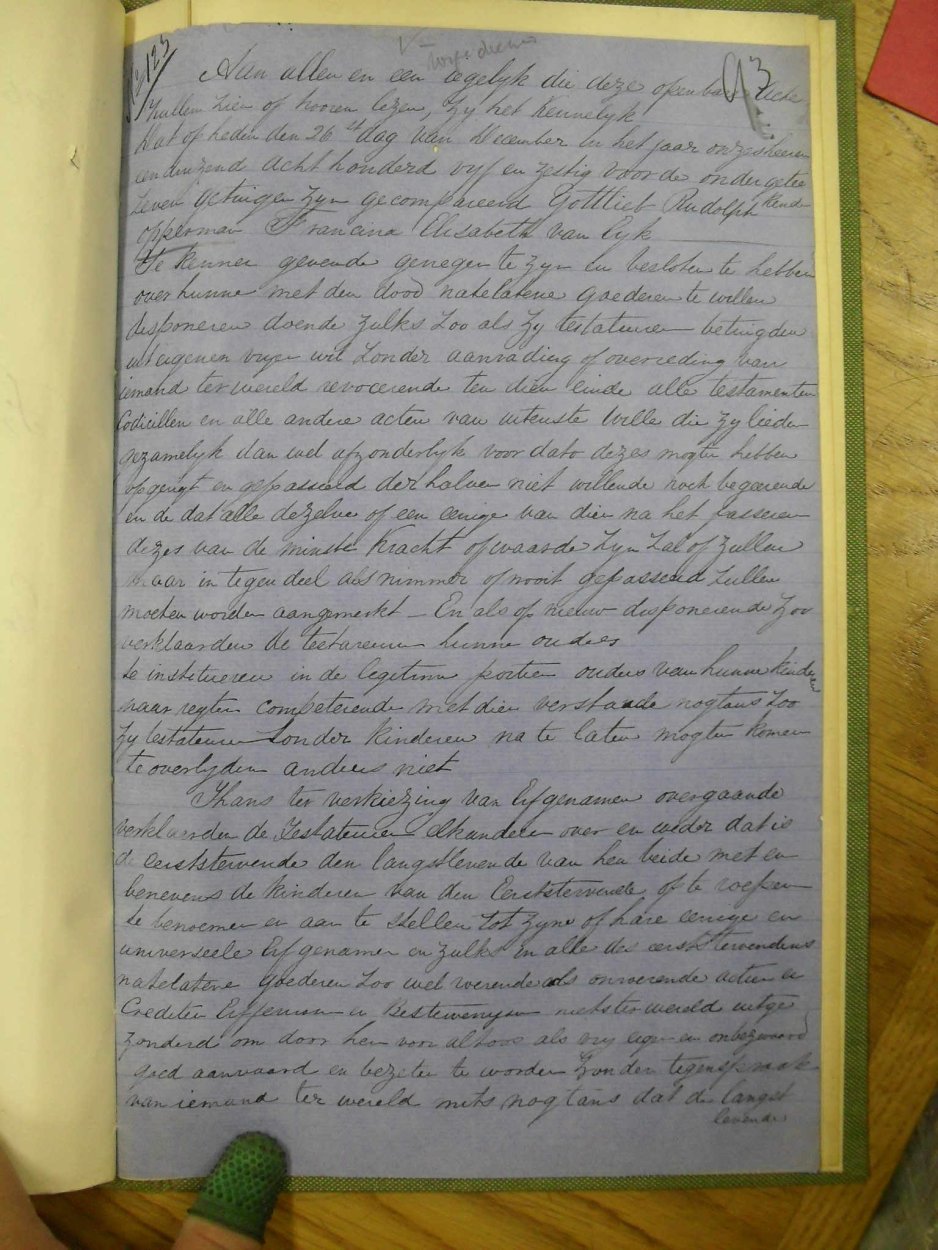 123
93
Aan allen en een iegelyk die deze openbare Acte
zullen zien of hooren lezen, zy het kennelyk
dat op heden den 26 st dag van December in het jaar onzes heeren
een duizend acht honderd vyf en zestig voor de ondergetee
kende
zeven getuigen zyn gecompareerd Gottlieb Rudolph
opperman Francina Elisabeth van Eyk
Te kennen gevende genegen te zyn en besloten te hebben
over hunne met den dood natelatene goederen te willen
disponeren doende zulks zoo als zy testateuren betuigden
uit eigenen vryen wil zonder aanrading of overreding van
iemand ter wereld revocerende ten dien einde alle testamenten
Codicillen en alle andere acten van uiterste wille die zy lieden
gezamelyk dan wel afzonderlyk voor dato dezes mogten hebben
opgeregt en gepasseerd derhalven niet willende noch begeerende
en de dat alle dezelve of een eenige van dien na het passeren
dezes van de minste kracht of waarde zyn zal of zullen
maar in tegendeel als nimmer of nooit gepasseerd zullen
moeten worden aangemerkt _ En als op nieuw disponerende zoo
verklaarden de testateuren hunne ouders
te institueren in de legitime portien ouders van hunne kinderen
naar regten competerende met dien verstaande nogtans zoo
zy testateuren zonder kinderen na te laten mogten komen
te overlyden anders niet
Thans ter verkiezing van Erfgenamen overgaande
verklaarden de Testateuren elkanderen over en weder dat is
de eerststervende den langstlevende van hen beide met en
benevens de kinderen van den Eerststervende of te roepen
te benoemen en aan te stellen tot zyne of hare eenige en
universeele Erfgenamen en zulks in alle des eerststervendens
natelatene goederen zoo wel roerende als onroerende actien en
Crediten Erffenissen en Bestervenissen niets ter wereld uitge
zonderd om door hen voor altoos als vry eigen en onbezwaard
goed aanvaard en bezeten te worden zonder tegenspraak
van iemand ter wereld mits nogtans dat de langst
levende